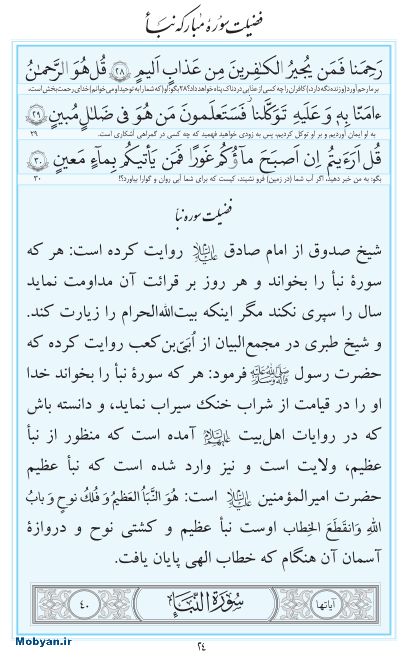 فضیلت سورهٔ مبارکه نبأ
رَحِمَنا فَمَن يُجيرُ الكٰفِرينَ مِن عَذابٍ اَليمٍ ﴿٢٨﴾ قُل هُوَ الرَّحمٰنُ
بر ما رحم آورد (و زنده نگه دارد)، کافران را چه کسی از عذابی دردناک پناه خواهد داد؟ ۲۸ بگو: او (که شما را به توحید او می‌خوانم) خدای رحمت‌بخش است.
ءامَنّا بِهٖ وَعَلَيهِ تَوَكَّلنا فَسَتَعلَمونَ مَن هُوَ فى ضَلٰلٍ مُبينٍ ﴿٢٩﴾
به او ایمان آوردیم و بر او توکل کردیم، پس به زودی خواهید فهمید که چه کسی در گمراهی آشکاری است. ۲۹
قُل اَرَءَيتُم اِن اَصبَحَ مآؤُكُم غَورًا فَمَن يَأتيكُم بِمآءٍ مَعينٍ ﴿٣٠﴾
بگو: به من خبر دهید، اگر آب شما (در زمین) فرو نشیند، کیست که برای شما آبی روان و گوارا بیاورد؟! ۳۰
فضیلت سوره نبا
شیخ صدوق از امام صادق علیه‌السلام روایت کرده است: هر که
سورهٔ نبأ را بخواند و هر روز بر قرائت آن مداومت نماید
سال را سپری نکند مگر اینکه بیت‌الله‌الحرام را زیارت کند.
و شیخ طبری در مجمع‌البیان از اُبَیّ‌بن‌کعب روایت کرده که
حضرت رسول صلی‌الله‌علیه‌وآله‌وسلم فرمود: هر که سورهٔ نبأ را بخواند خدا
او را در قیامت از شراب خنک سیراب نماید، و دانسته باش
که در روایات اهل‌بیت علیهم‌السلام آمده است که منظور از نبأ
عظیم، ولایت است و نیز وارد شده است که نبأ عظیم
حضرت امیرالمؤمنین علیه‌السلام است: هُوَ النَّبَأُ العَظیمُ وَ فُلكُ نوحٍ وَ بابُ
اللهِ وَانقَطَعَ الخطاب اوست نبأ عظیم و کشتی نوح و دروازهٔ
آسمان آن هنگام که خطاب الهی پایان یافت.
آیاتها سُورَةُ النَّبَإِ ۴۰
Mobyan.ir ۲۴